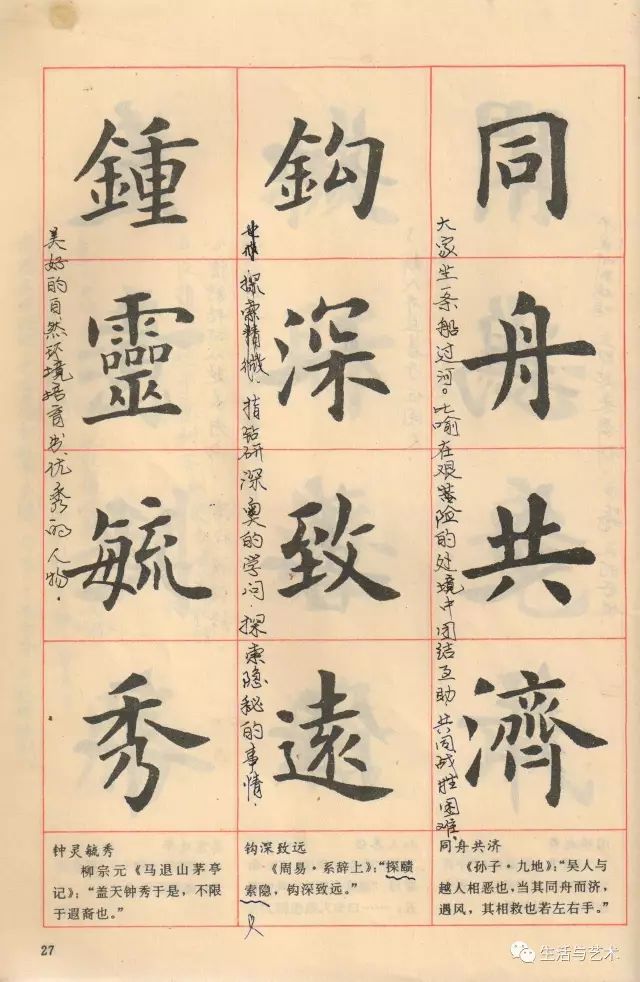 同舟共濟
大家坐一条船过河。比喻在艰险的处境中团结互助，共同战胜困难。
鈎深致遠
探索精微，指钻研深奥的学问，探索隐秘的事情。
鍾靈毓秀
美好的自然环境培育出优秀的人物。
同舟共济
《孙子·九地》：“吴人与
越人相恶也，当其同舟而济，
遇风，其相救也若左右手。”
钩深致远
《周易·系辞上》：“探赜
索隐，钩深致远。”
钟灵毓秀
柳宗元《马退山茅亭
记》：“盖天钟秀于是，不限
于遐裔也。”
27
生活与艺术